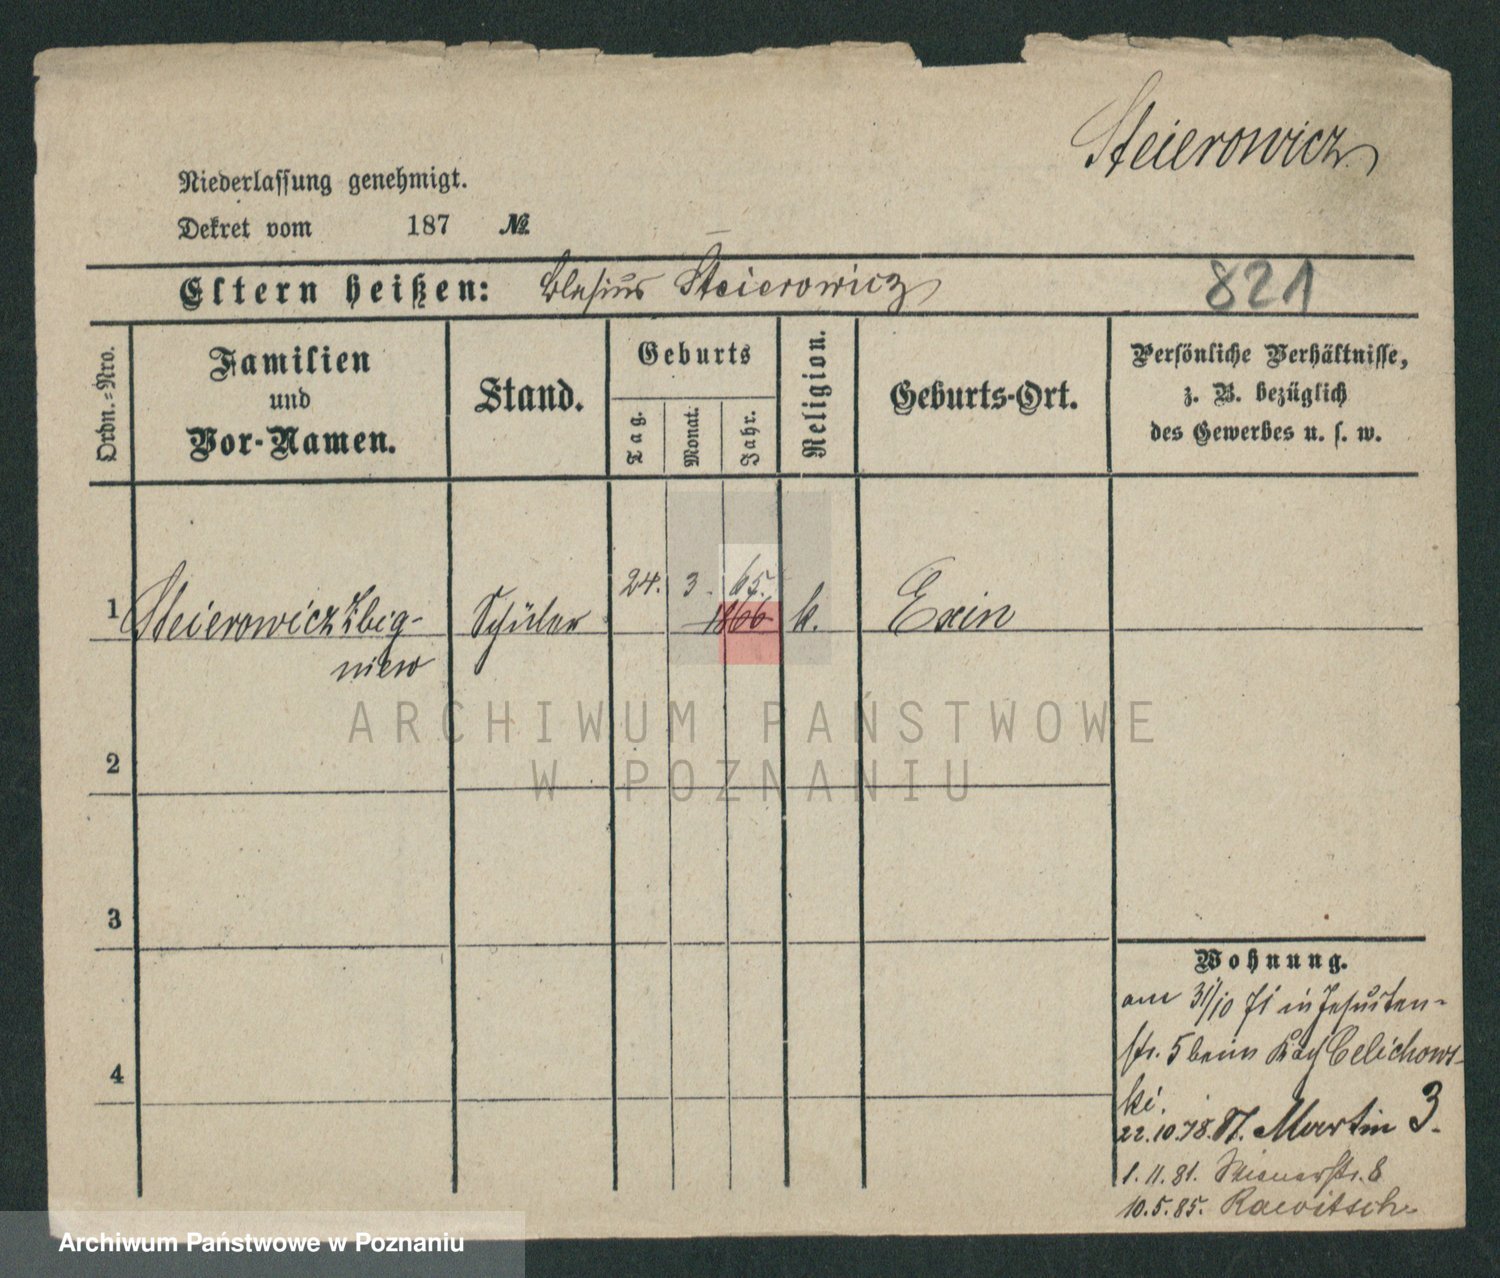 Steierowicz
Niederlassung genehmigt.
Dekret vom 187 №
Eltern heißen: Blasius Steierowicz
821
Ordn.=Nro.
Familien
und
Vor-Namen.
Stand.
Geburts
Tag.
Monat.
Jahr.
Religion.
Geburts-Ort.
Persönliche Verhältnisse,
z. B. bezüglich
des Gewerbes u. s. w.
24. 3. 65.
1 Steierowicz Zbig- Schüler 1866 k. Exin
niew
ARCHIWUM PAŃSTWOWE
W POZNANIU
2
3
4
Wohnung.
am 31/10 71 in Jesuiten-
str. 5 beim Celichows-
ki.
22.10.78. St. Martin 3.
1.11.81. 8
10.5.85. Rawitsch
Archiwum Państwowe w Poznaniu